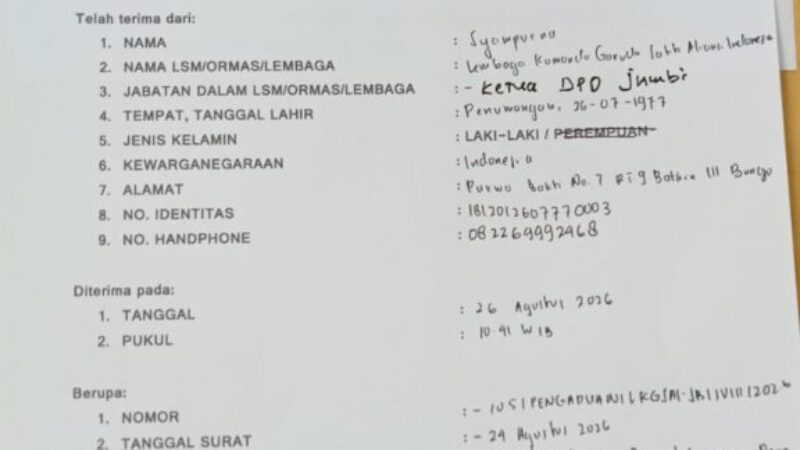 Telah terima dari:
1. NAMA : Syampurna
2. NAMA LSM/ORMAS/LEMBAGA : Lembaga Komando Garuda Sakti Aliansi Indonesia
3. JABATAN DALAM LSM/ORMAS/LEMBAGA : - Ketua DPD Jambi
4. TEMPAT, TANGGAL LAHIR : Penumangan, 26-07-1977
5. JENIS KELAMIN : LAKI-LAKI / PEREMPUAN
6. KEWARGANEGARAAN : Indonesia
7. ALAMAT : Purwo bakti No. 7 Rt. 9 Bathin III Bungo
8. NO. IDENTITAS : 1812012607770003
9. NO. HANDPHONE : 082269992468
Diterima pada:
1. TANGGAL : 26 Agustus 2026
2. PUKUL : 10.41 WIB
Berupa:
1. NOMOR : - 105/PENGADUAN/LKGSAI-JBI/VIII/2026
2. TANGGAL SURAT : - 24 Agustus 2026